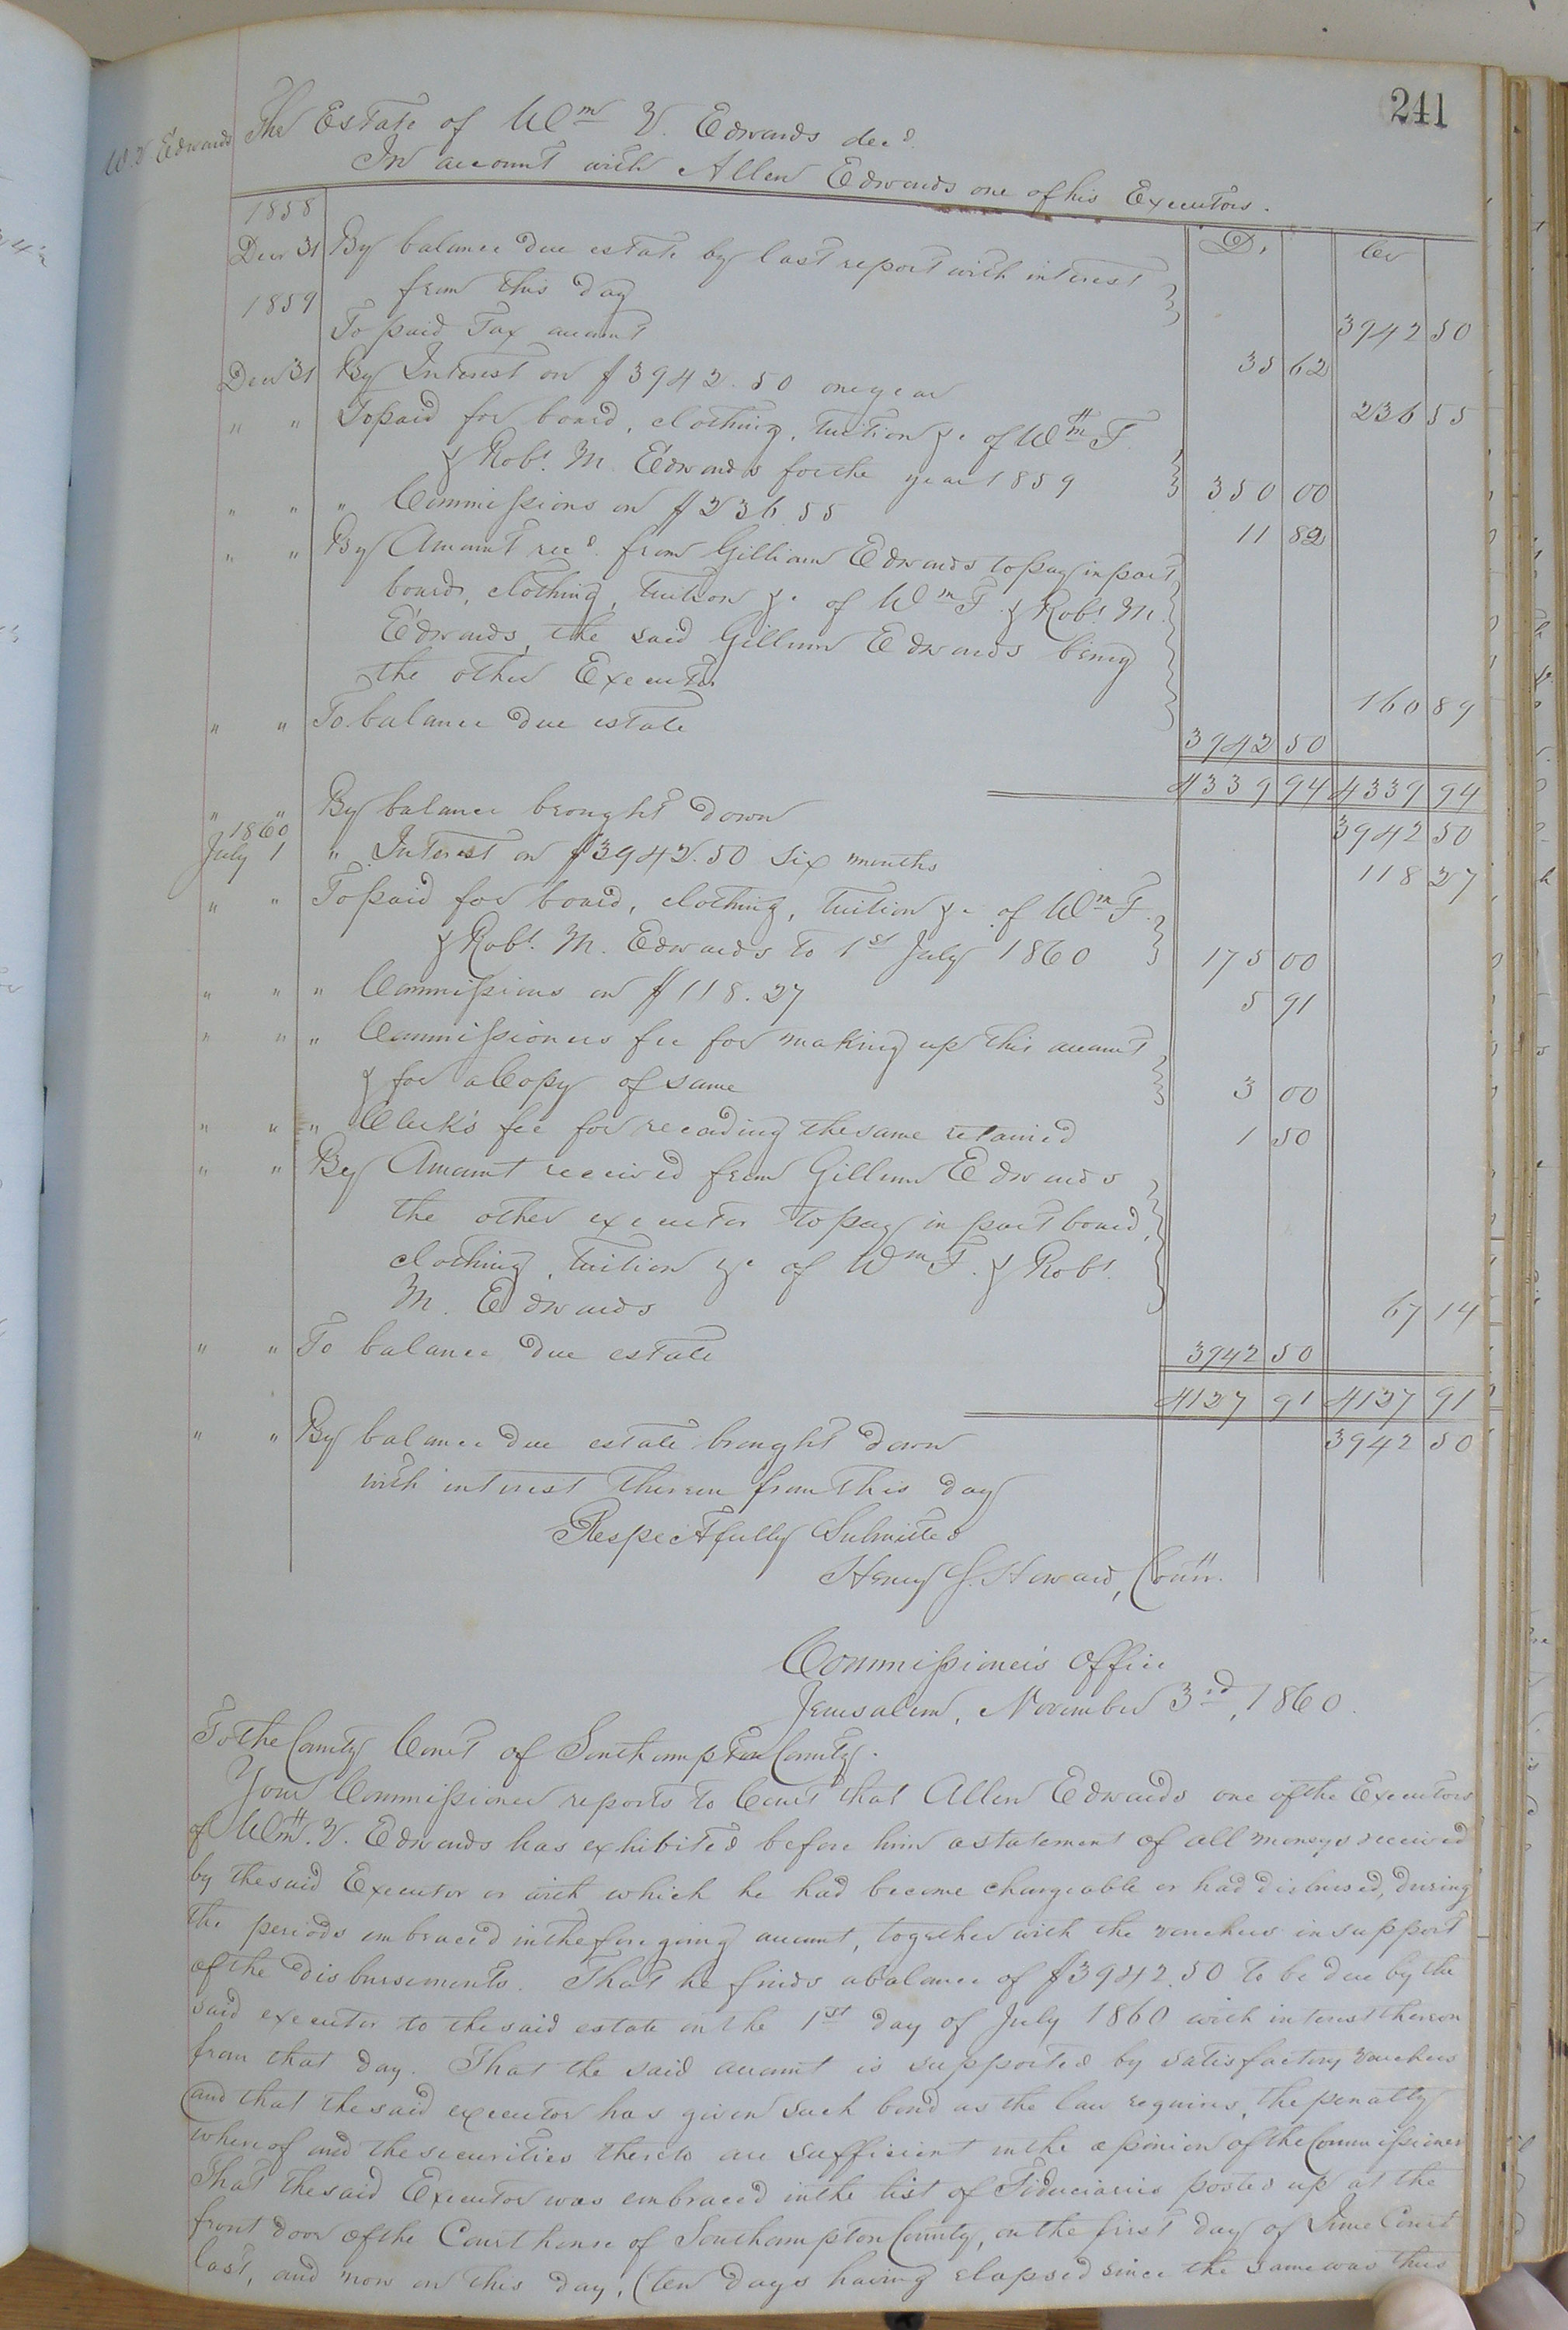 241
W. V Edwards
The Estate of Wm V. Edwards decd.
In account with Allen Edwards one of his Executors.
1858
Dr. Cr
Decr 31 By balance due estate by last report with interest
from this day 3942 50
1859
To paid Tax account 35 62
Decr 31 By Interest on $3942.50 one year 236 55
" " To paid for board, clothing, tuition &c of Wm F.
& Robt. M. Edwards for the year 1859 350 00
" " " Commissions on $236.55 11 82
" " By Amount recd. from Gilliam Edwards to pay in part
board, clothing, tuition &c of Wm F. & Robt. M.
Edwards, the said Gillum Edwards being
the other Executor 160 89
" " To balance due estate 3942 50
4339 94 4339 94
" " By balance brought down 3942 50
1860
July 1 " Interest on $3942.50 six months 118 27
" " To paid for board, clothing, tuition &c of Wm F.
& Robt. M. Edwards to 1st July 1860 175 00
" " " Commissions on $118.27 5 91
" " " Commissioners fee for making up this account
& for a Copy of same 3 00
" " " Clerk's fee for recording the same retained 1 50
" " By Amount received from Gillum Edwards
the other executor to pay in part board,
clothing, tuition &c of Wm F. & Robt.
M. Edwards 67 14
" " To balance due estate 3942 50
4127 91 4127 91
" " By balance due estate brought down 3942 50
with interest thereon from this day
Respectfully Submitted
Henry J. Howard, Comr.
Commissioner's Office
Jerusalem, November 3rd, 1860.
To the County Court of Southampton County.
Your Commissioner reports to Court that Allen Edwards one of the Executors
of Wm. V. Edwards has exhibited before him a statement of all moneys received
by the said Executor or with which he had become chargeable or had disbursed, during
the periods embraced in the foregoing account, together with the vouchers in support
of the disbursements. That he finds a balance of $3942.50 to be due by the
said executor to the said estate on the 1st day of July 1860 with interest thereon
from that day. That the said account is supported by satisfactory vouchers
and that the said executor has given such bond as the law requires, the penalty
whereof and the securities thereto are sufficient in the opinion of the Commissioner
That the said Executor was embraced in the list of Fiduciaries posted up at the
front door of the Court house of Southampton County, on the first day of June Court
last, and now on this day, (ten days having elapsed since the same was thus